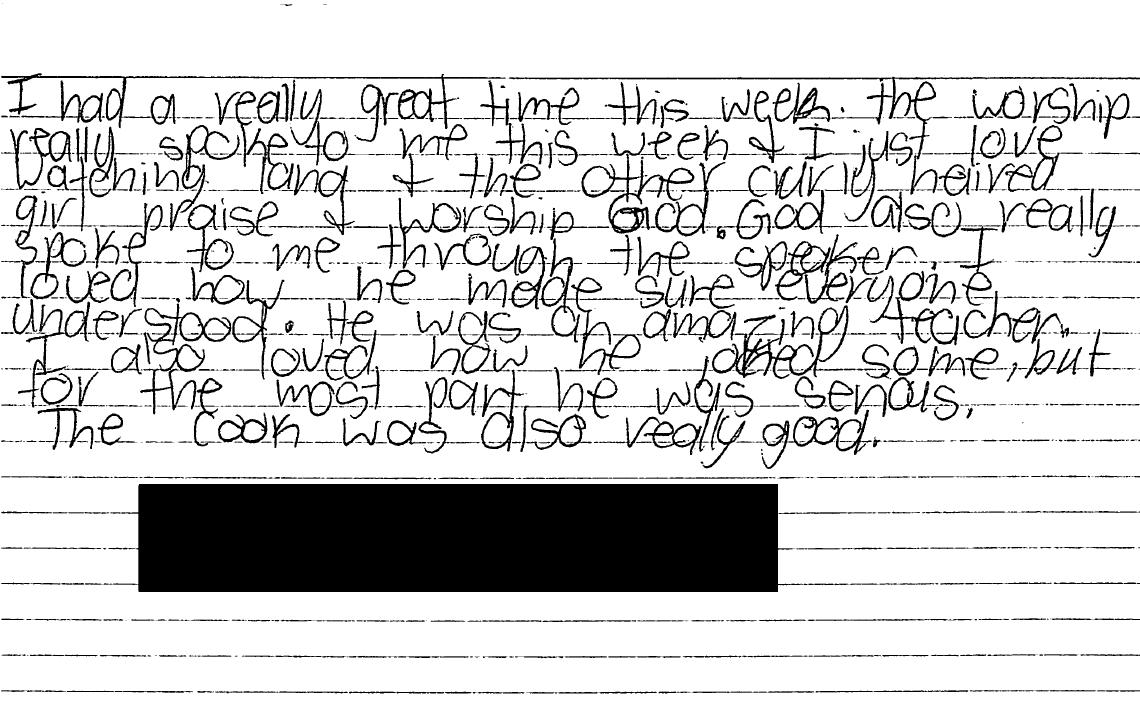 I had a really great time this week. the worship
really spoke to me this week & I just love
watching lang & the other curly haired
girl praise & worship God. God also really
spoke to me through the speaker. I
loved how he made sure everyone
understood. He was an amazing teacher.
I also loved how he joked some, but
for the most part he was serious.
The cook was also really good.